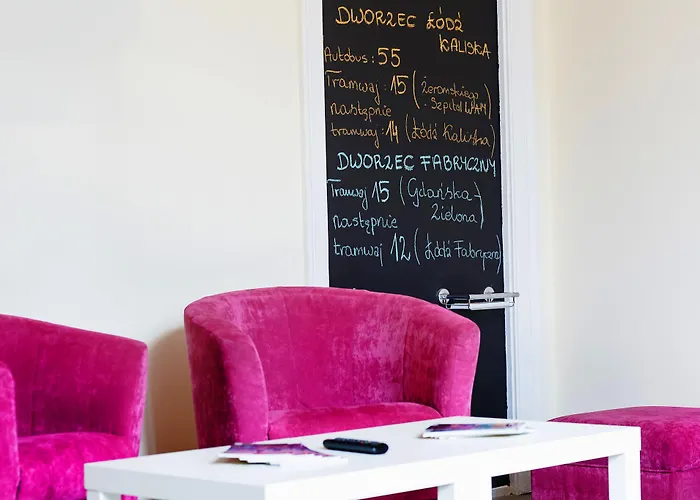 DWORZEC ŁÓDŹ
KALISKA
Autobus : 55
Tramwaj : 15 (Żeromskiego
następnie - Szpital WAM)
tramwaj : 14 (Łódź Kaliska)
DWORZEC FABRYCZNY
Tramwaj 15 (Gdańska -
następnie Zielona)
tramwaj 12 (Łódź Fabryczna)